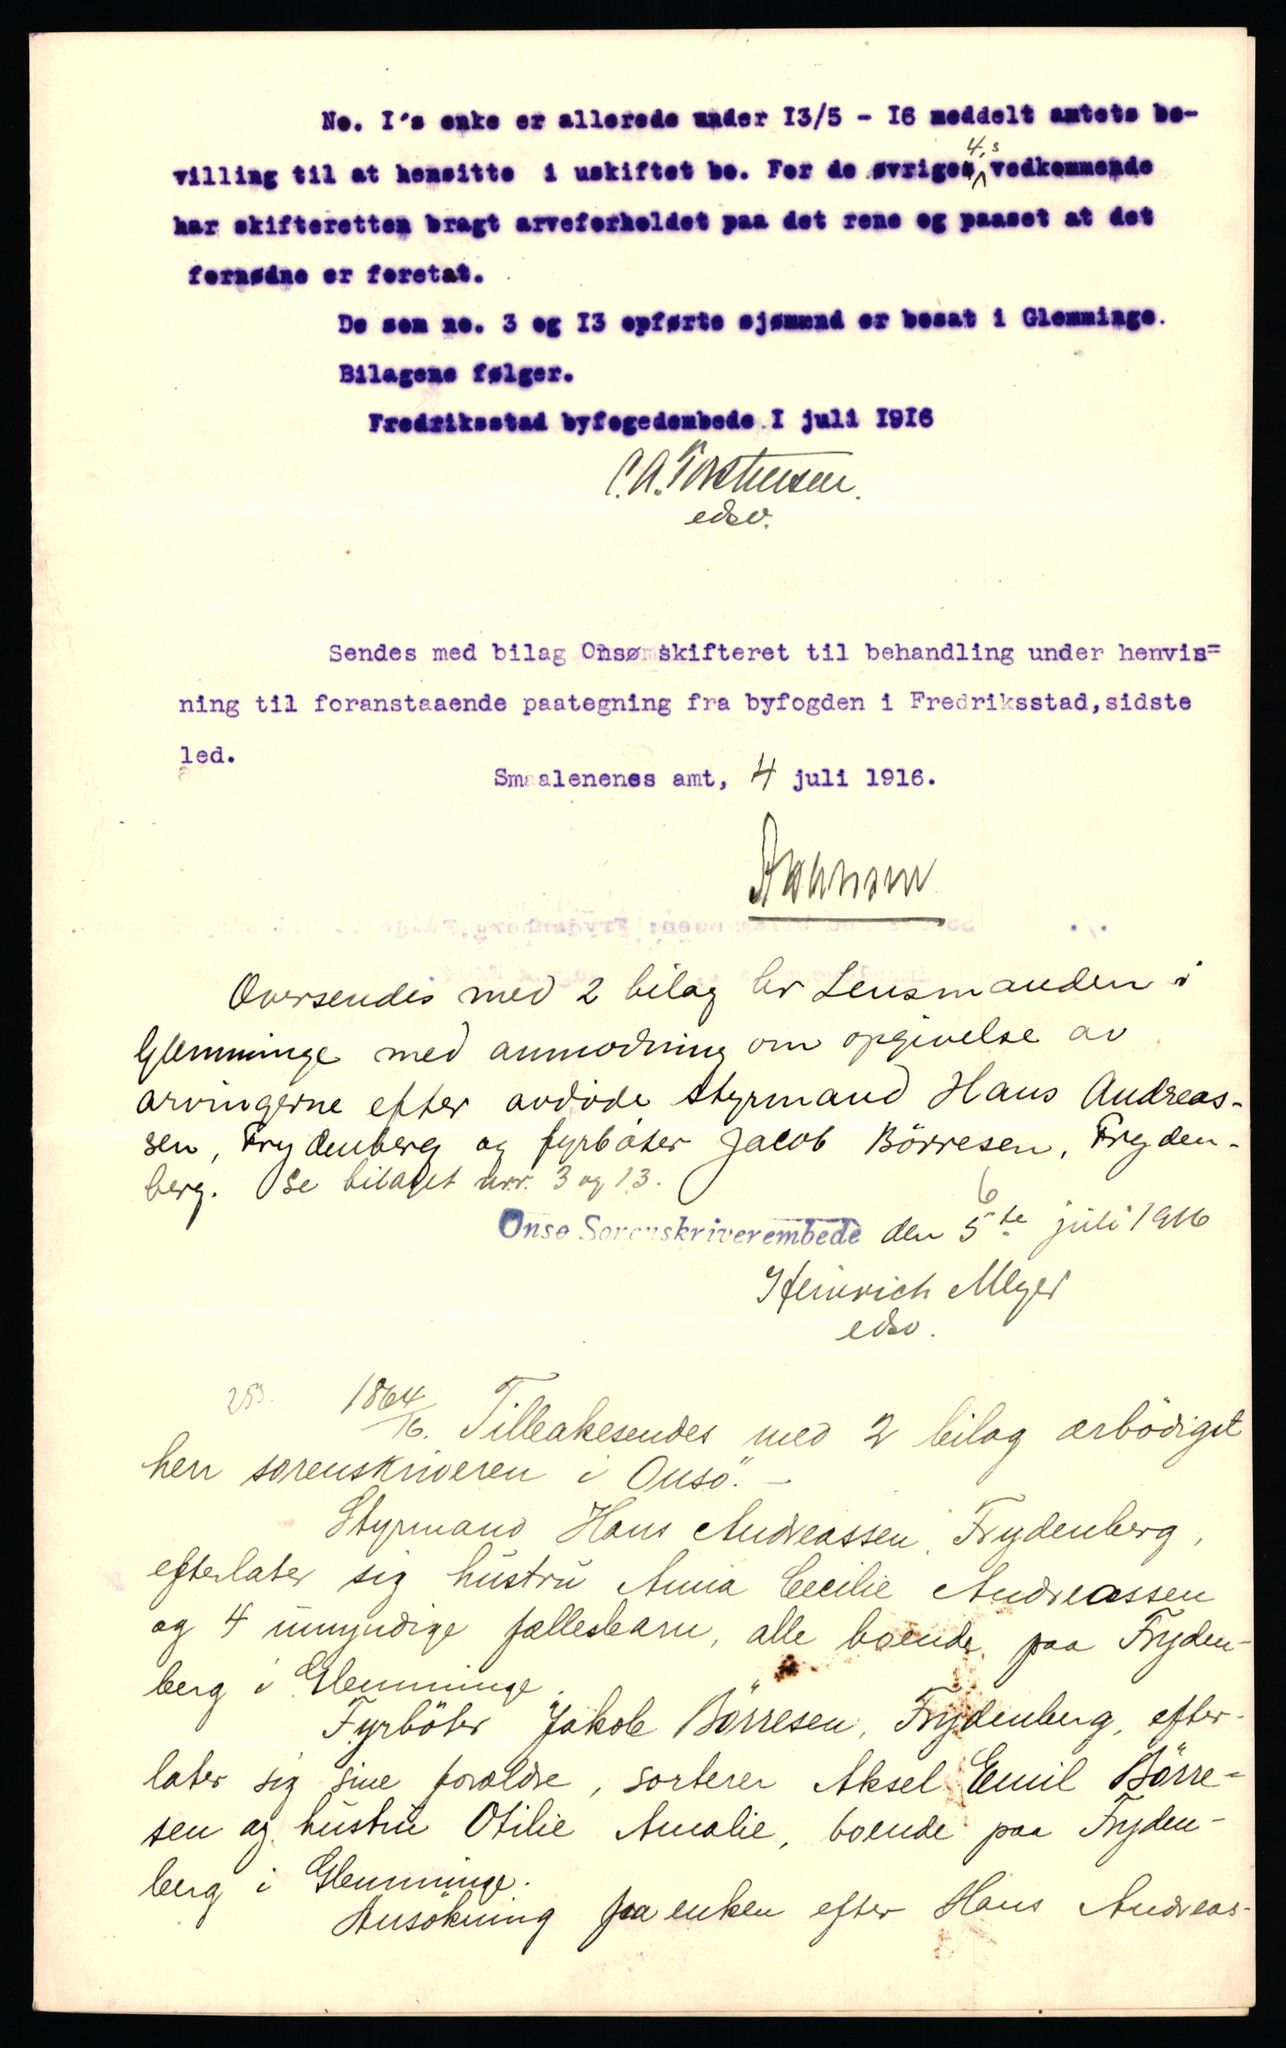 No. I's enke er allerede under I3/5 - I6 meddelt amtets be-
villing til at hensitte i uskiftet bo. For de øvriges 4,s vedkommende
har skifteretten bragt arveforholdet paa det rene og paaset at det
fornødne er foretat.
De som no. 3 og I3 opførte sjømænd er bosat i Glemminge.
Bilagene følger.
Fredriksstad byfogedembede I juli I9I6
C.A. Torstensen.
edsv.
Sendes med bilag Onsø skifteret til behandling under henvis=
ning til foranstaaende paategning fra byfogden i Fredriksstad, sidste
led.
Smaalenenes amt, 4 juli 1916.
Oversendes med 2 bilag hr Lensmanden i
Glemminge med anmodning om opgivelse av
arvingerne efter avdöde styrmand Hans Andreas-
sen, Frydenberg og fyrböter Jacob Börresen, Fryden-
berg. Se bilaget nr. 3 og 13.
6
Onsø Sorenskriverembede den 5te juli 1916
Heinrich Meyer
edsv.
253. 1864/16. Tilbakesendes med 2 bilag ærbödigst
herr sorenskriveren i Onsö. -
Styrmand Hans Andreassen, Frydenberg,
efterlater sig hustru Anna Cecilie Andreassen
og 4 umyndige fællesbarn, alle boende paa Fryden-
berg i Glemminge.
Fyrböter Jakob Börresen, Frydenberg, efter-
later sig sine forældre, sorterer Aksel Emil Börre-
sen og hustru Otilie Amalie, boende paa Fryden-
berg i Glemminge.
Ansökning fra enken efter Hans Andreas-